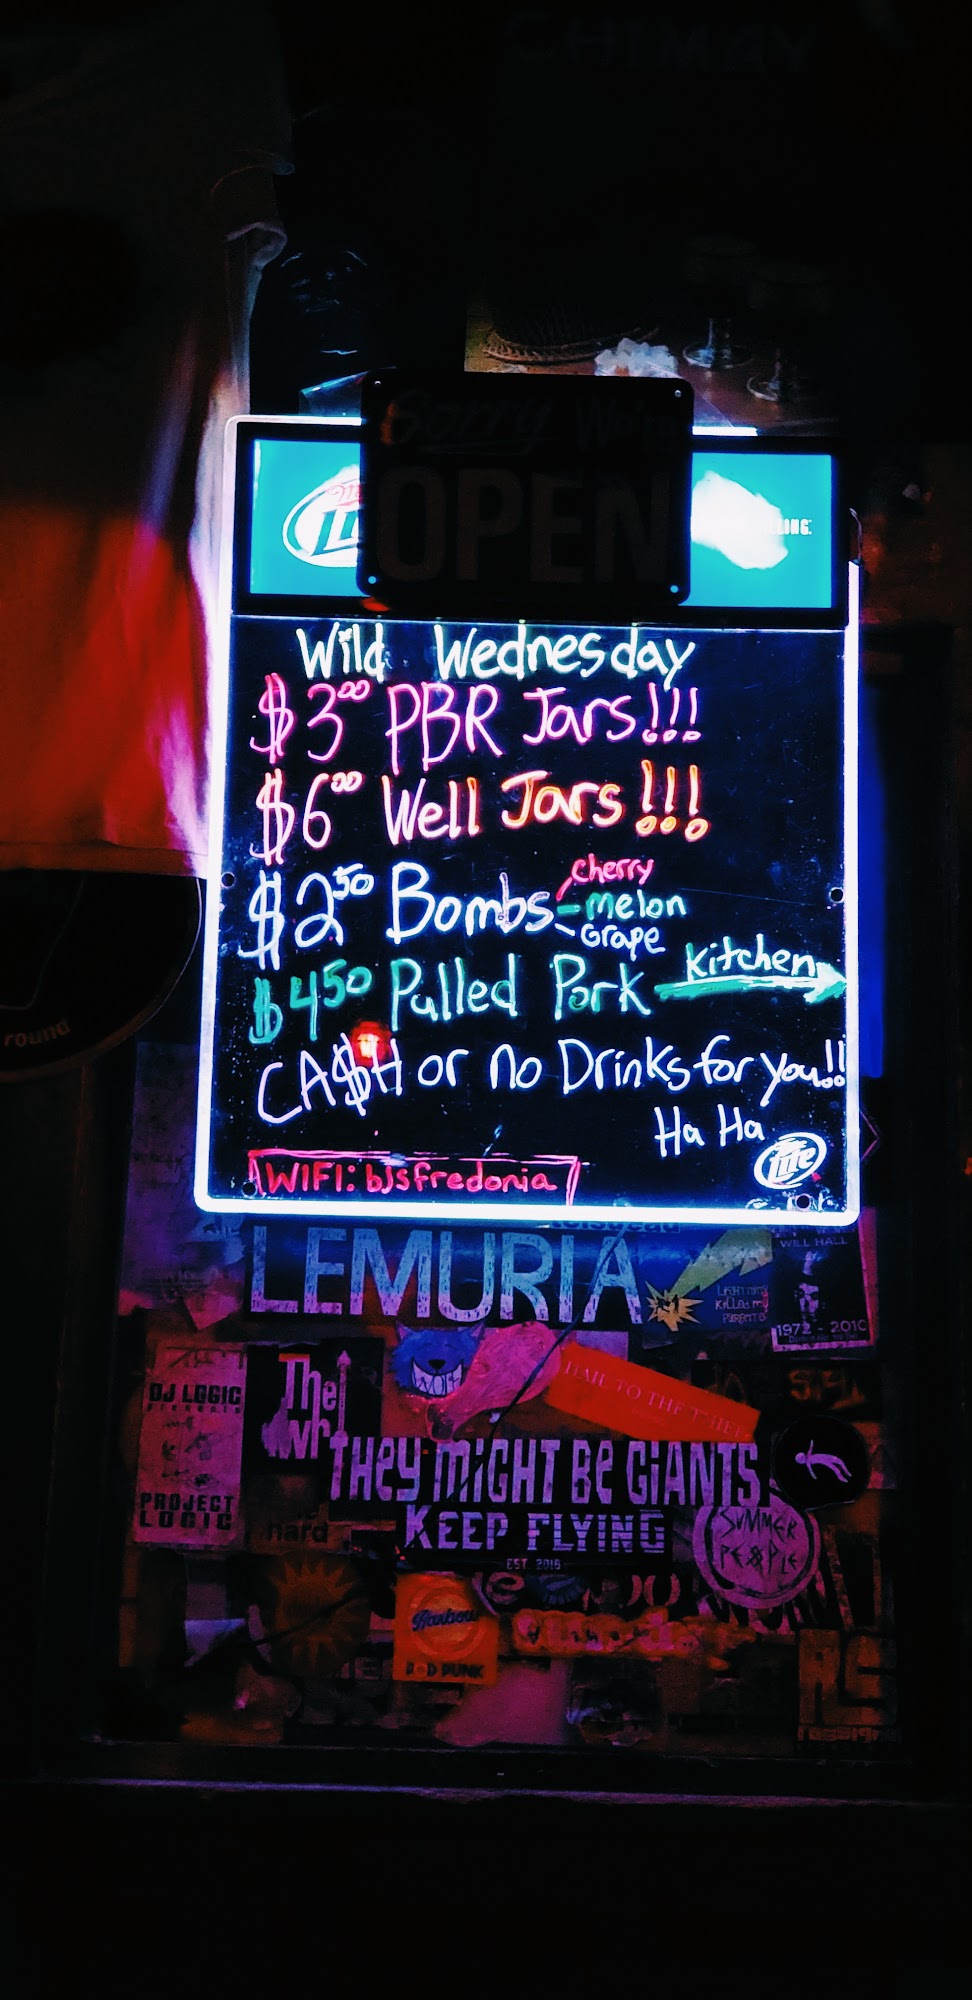 CHIMAY
Sorry We're
OPEN
Wild Wednesday
$3.00 PBR Jars!!!
$6.00 Well Jars!!!
$2.50 Bombs
Cherry
melon
Grape
$4.50 Pulled Pork Kitchen
CA$H or no Drinks for you!!
Ha Ha
Lite
WIFI: bjsfredonia
round
LEMURIA
LIGHTNING
KILLED MY
PARENTS
WILL HALL
1972 - 2010
DJ LOGIC
presents
PROJECT
LOGIC
The
HAIL TO THE THIEF
THEY MIGHT BE GIANTS
KEEP FLYING
EST. 2015
SUMMER
PEOPLE
POP PUNK